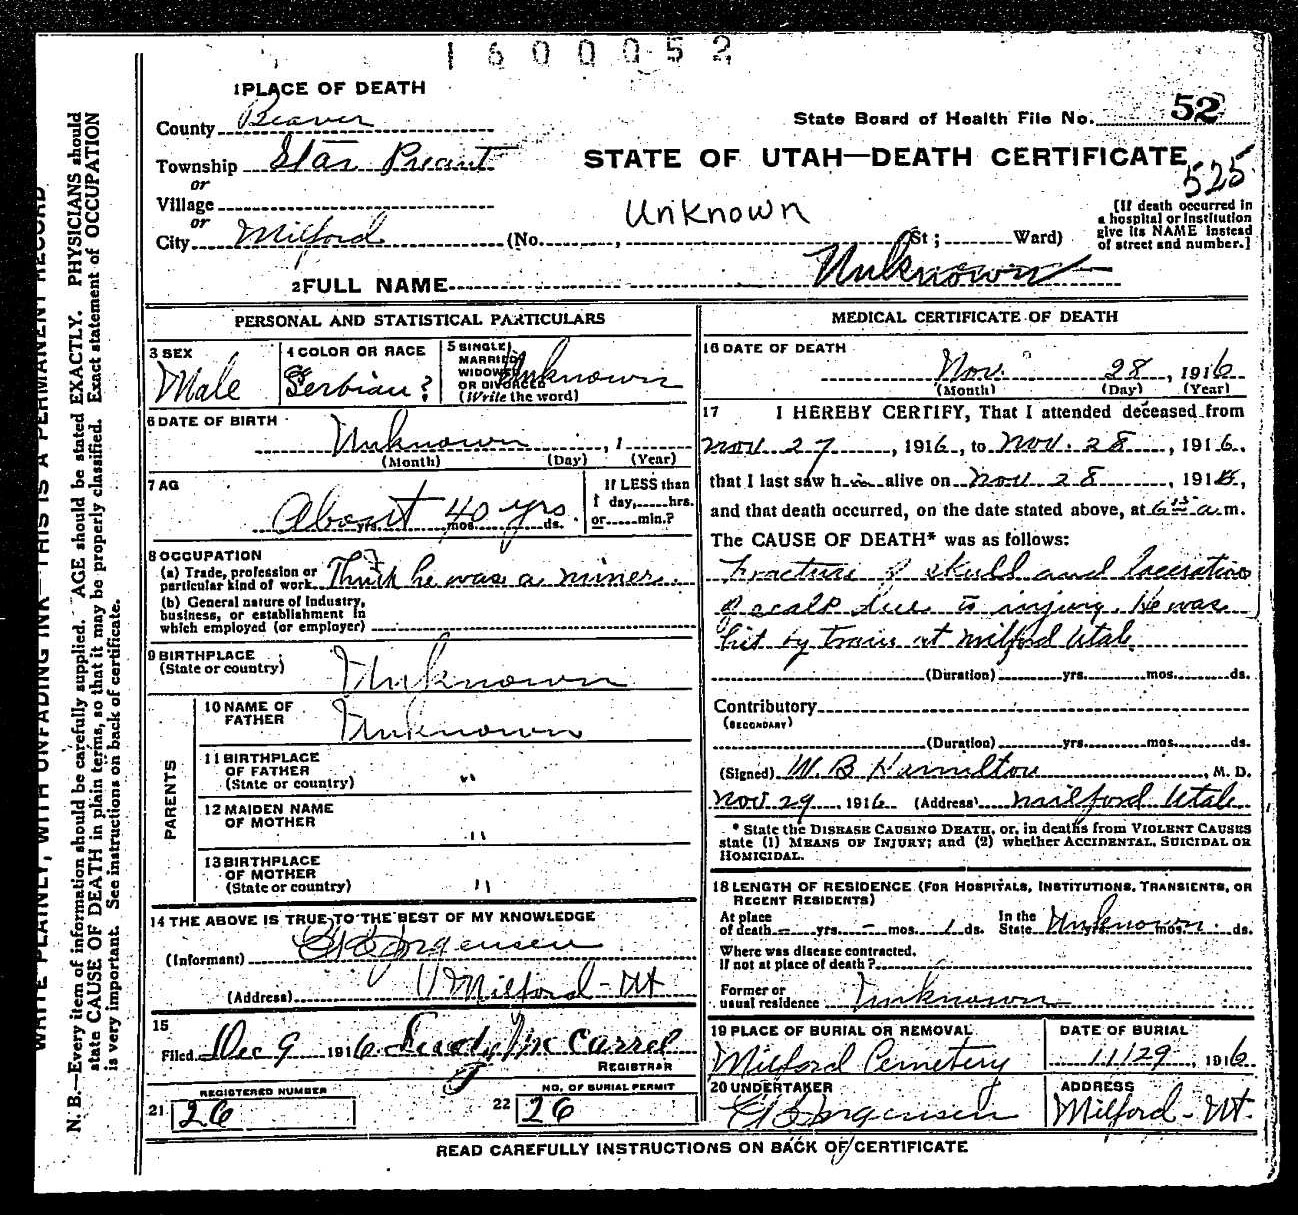 1600052
1 PLACE OF DEATH
County Beaver
State Board of Health File No. 52
Township Star Precint
STATE OF UTAH—DEATH CERTIFICATE
525
or
Village
or
Unknown
[If death occurred in
a hospital or institution
give its NAME instead
of street and number.]
City Milford (No. , St ; Ward)
2 FULL NAME Unknown
PERSONAL AND STATISTICAL PARTICULARS
3 SEX
Male
4 COLOR OR RACE
Serbian?
5 SINGLE
MARRIED
WIDOWED
OR DIVORCED
(Write the word)
Unknown
6 DATE OF BIRTH
Unknown , 1
(Month) (Day) (Year)
7 AG
About 40 yrs
yrs. mos. ds.
If LESS than
1 day, hrs.
or min.?
8 OCCUPATION
(a) Trade, profession or
particular kind of work Think he was a miner.
(b) General nature of industry,
business, or establishment in
which employed (or employer)
9 BIRTHPLACE
(State or country) Unknown
PARENTS
10 NAME OF
FATHER Unknown
11 BIRTHPLACE
OF FATHER
(State or country) "
12 MAIDEN NAME
OF MOTHER "
13 BIRTHPLACE
OF MOTHER
(State or country) "
14 THE ABOVE IS TRUE TO THE BEST OF MY KNOWLEDGE
(Informant) Jorgensen
(Address) Milford - Ut
15
Filed Dec 9 1916 McCarrel
REGISTRAR
REGISTERED NUMBER
21 26
NO. OF BURIAL PERMIT
22 26
MEDICAL CERTIFICATE OF DEATH
16 DATE OF DEATH
Nov. 28, 1916
(Month) (Day) (Year)
17 I HEREBY CERTIFY, That I attended deceased from
Nov. 27, 1916, to Nov. 28, 1916,
that I last saw him alive on Nov 28, 1916,
and that death occurred, on the date stated above, at 6 15 a.m.
The CAUSE OF DEATH* was as follows:
Fracture of skull and laceration
of scalp due to injury. He was
hit by train at Milford Utah
(Duration) yrs. mos. ds.
Contributory
(SECONDARY)
(Duration) yrs. mos. ds.
(Signed) W. B. Hamilton, M. D.
Nov 29 1916 (Address) Milford Utah
* State the DISEASE CAUSING DEATH, or, in deaths from VIOLENT CAUSES
state (1) MEANS OF INJURY; and (2) whether ACCIDENTAL, SUICIDAL OR
HOMICIDAL.
18 LENGTH OF RESIDENCE (FOR HOSPITALS, INSTITUTIONS, TRANSIENTS, OR
RECENT RESIDENTS)
At place
of death - yrs. - mos. 1 ds.
In the
State Unknown mos. ds.
Where was disease contracted.
If not at place of death?
Former or
usual residence Unknown
19 PLACE OF BURIAL OR REMOVAL
Milford Cemetery
DATE OF BURIAL
11/29, 1916
20 UNDERTAKER
Jorgensen
ADDRESS
Milford - Ut.
READ CAREFULLY INSTRUCTIONS ON BACK OF CERTIFICATE
WRITE PLAINLY, WITH UNFADING INK—THIS IS A PERMANENT RECORD
N. B.—Every item of information should be carefully supplied. AGE should be stated EXACTLY. PHYSICIANS should
state CAUSE OF DEATH in plain terms, so that it may be properly classified. Exact statement of OCCUPATION
is very important. See instructions on back of certificate.